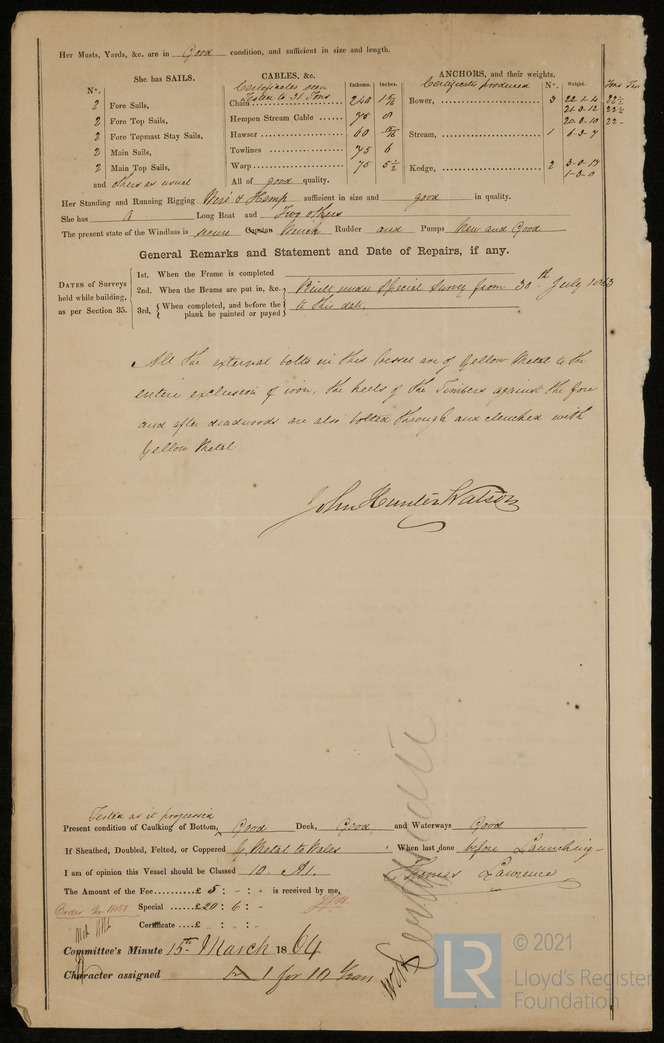 Her Masts, Yards, &c. are in Good condition, and sufficient in size and length.
She has SAILS. CABLES, &c. ANCHORS, and their weights.
Certificates seen Certificates produced
N°. Fathoms. Inches. N°. Weight.
2 Fore Sails, Tested to 31 Tons
Chain 240 Bower, 3 22-1-4 22½
2 Fore Top Sails, Hempen Stream Cable 75 8 21-3-12 22½
20-3-10 22-
2 Fore Topmast Stay Sails, Hawser 60 Stream, 1 6-3-7
2 Main Sails, Towlines 75 6
2 Main Top Sails, Warp 75 5½ Kedge, 2 3-0-17
1-3-0
and others as usual All of good quality.
Her Standing and Running Rigging Wire & Hemp sufficient in size and good in quality.
She has A Long Boat and Two others
The present state of the Windlass is secure Capstan Winch Rudder and Pumps New and Good
General Remarks and Statement and Date of Repairs, if any.
DATES of Surveys held while building, as per Section 35.
1st. When the Frame is completed
2nd. When the Beams are put in, &c. Built under Special Survey from 30th July 1863
3rd. { When completed, and before the plank be painted or payed } to this date.
All the external bolts in this Vessel are of Yellow Metal to the
entire exclusion of iron, the heels of the Timbers against the fore
and after deadwoods are also bolted through and clenched with
Yellow Metal
John Hunter Watson
Tested as it progressed
Present condition of Caulking of Bottom, Good Deck, Good and Waterways Good
If Sheathed, Doubled, Felted, or Coppered Y Metal to Wales When last done before Launching
I am of opinion this Vessel should be Classed 10 A1. Thomas Lawrence
The Amount of the Fee £ 5 : - : - is received by me,
Special £20 : 6 : -
Certificate £ : :
Committee's Minute 15th March 1864
Character assigned A 1 for 10 Years
© 2021
LR
Lloyd's Register
Foundation